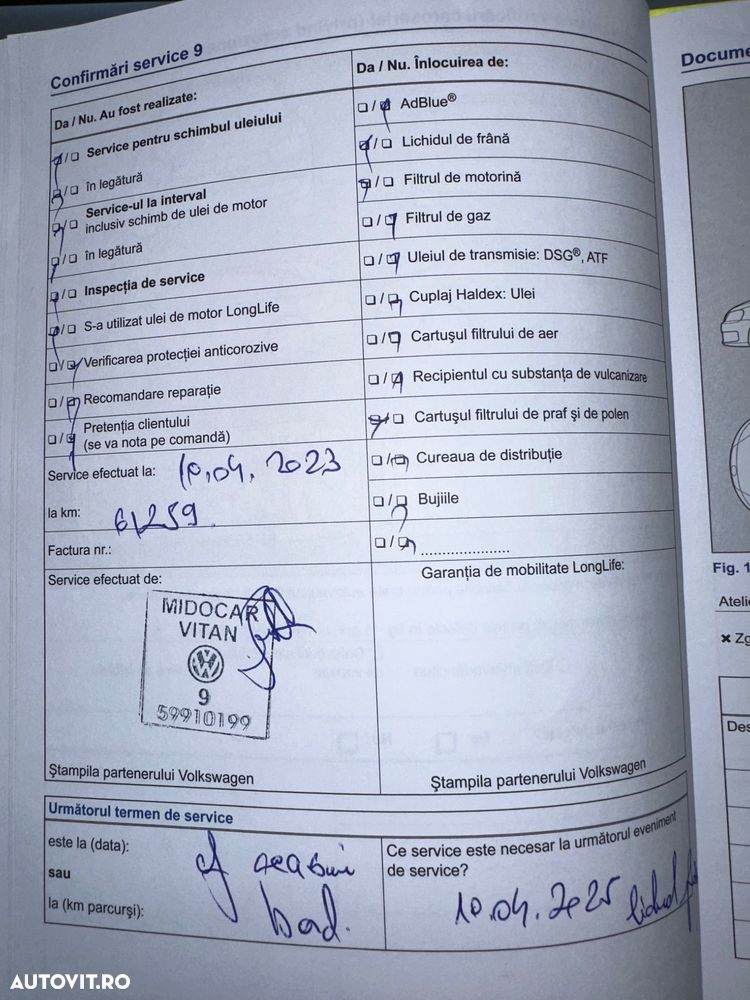 Confirmări service 9
Da / Nu. Au fost realizate:
Service pentru schimbul uleiului
în legătură
Service-ul la interval
inclusiv schimb de ulei de motor
în legătură
Inspecția de service
S-a utilizat ulei de motor LongLife
Verificarea protecției anticorozive
Recomandare reparație
Pretenția clientului
(se va nota pe comandă)
Service efectuat la: 10.04.2023
la km: 61259
Factura nr.:
Service efectuat de:
MIDOCAR
VITAN
9
59910199
Ștampila partenerului Volkswagen
Da / Nu. Înlocuirea de:
AdBlue®
Lichidul de frână
Filtrul de motorină
Filtrul de gaz
Uleiul de transmisie: DSG®, ATF
Cuplaj Haldex: Ulei
Cartușul filtrului de aer
Recipientul cu substanța de vulcanizare
Cartușul filtrului de praf și de polen
Cureaua de distribuție
Bujiile
......................
Garanția de mobilitate LongLife:
Ștampila partenerului Volkswagen
Următorul termen de service
este la (data):
sau
la (km parcurși):
bord.
Ce service este necesar la următorul eveniment
de service?
10.04.2025 lichid
Docume
Fig. 1
Atelie
× Zg
Des
AUTOVIT.RO